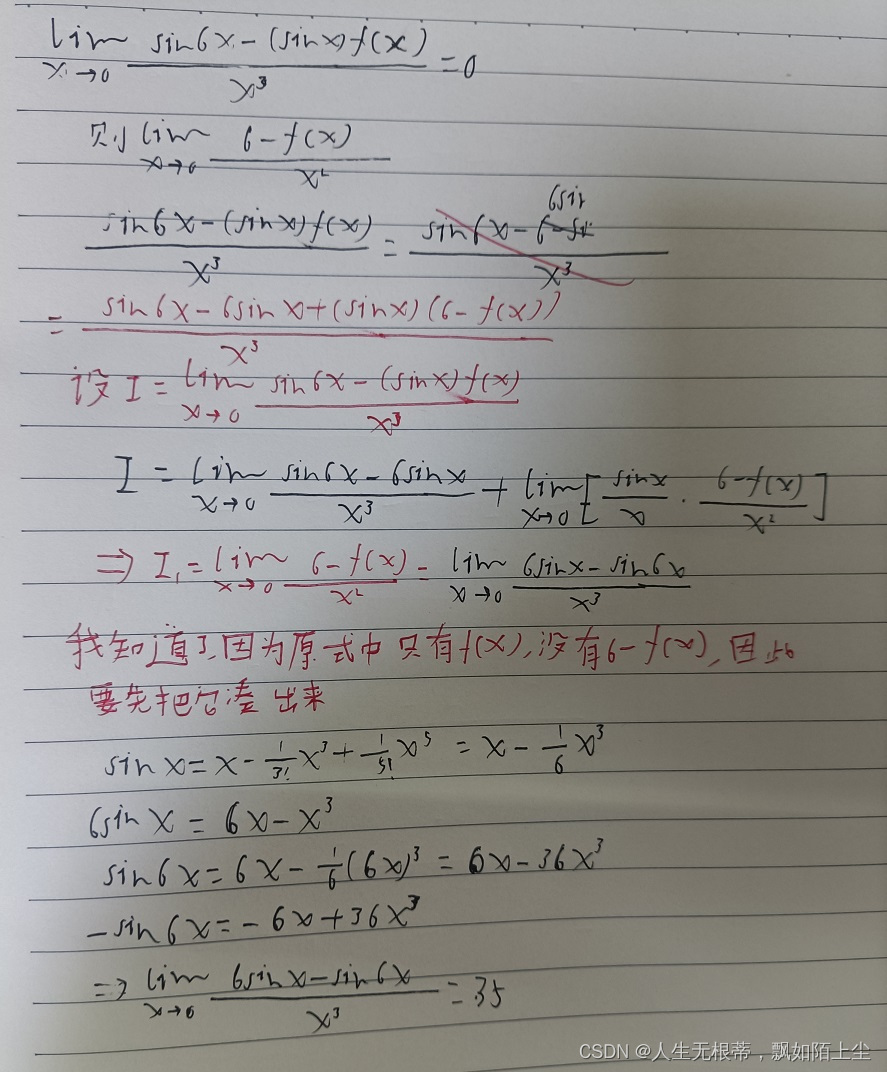 lim x→0 (sin6x - (sinx)f(x)) / x³ = 0
则 lim x→0 (6 - f(x)) / x²
(sin6x - (sinx)f(x)) / x³ = (sin6x - 6sin) / x³
= (sin6x - 6sinx + (sinx)(6 - f(x))) / x³
设 I = lim x→0 (sin6x - (sinx)f(x)) / x³
I = lim x→0 (sin6x - 6sinx) / x³ + lim x→0 [ sinx / x · (6 - f(x)) / x² ]
⇒ I₁ = lim x→0 (6 - f(x)) / x² = lim x→0 (6sinx - sin6x) / x³
我知道了,因为原式中只有f(x),没有6-f(x),因此
要先把它凑出来
sinx = x - 1/3! x³ + 1/5! x⁵ = x - 1/6 x³
6sinx = 6x - x³
sin6x = 6x - 1/6 (6x)³ = 6x - 36x³
-sin6x = -6x + 36x³
=> lim x→0 (6sinx - sin6x) / x³ = 35
CSDN @人生无根蒂，飘如陌上尘